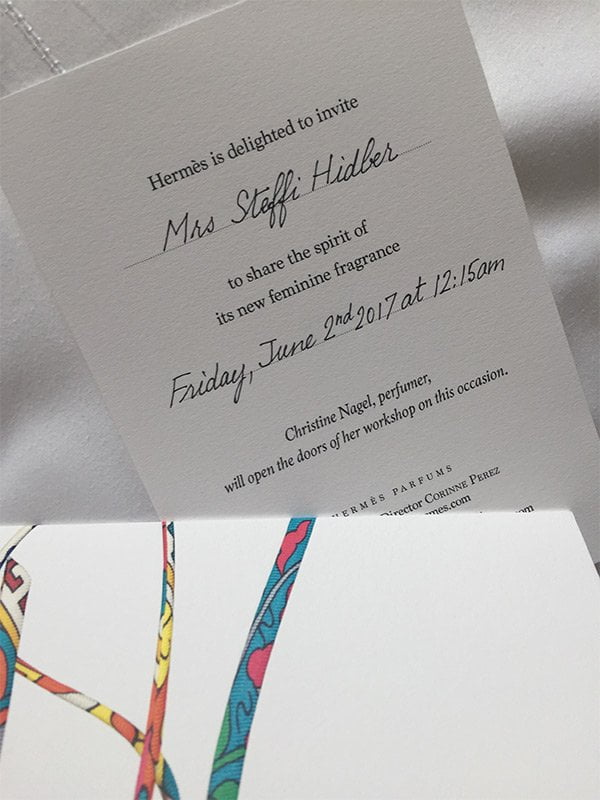 Hermès is delighted to invite
Mrs Steffi Hidber
to share the spirit of
its new feminine fragrance
Friday, June 2nd 2017 at 12:15am
Christine Nagel, perfumer,
will open the doors of her workshop on this occasion.
HERMÈS PARFUMS
Director CORINNE PEREZ